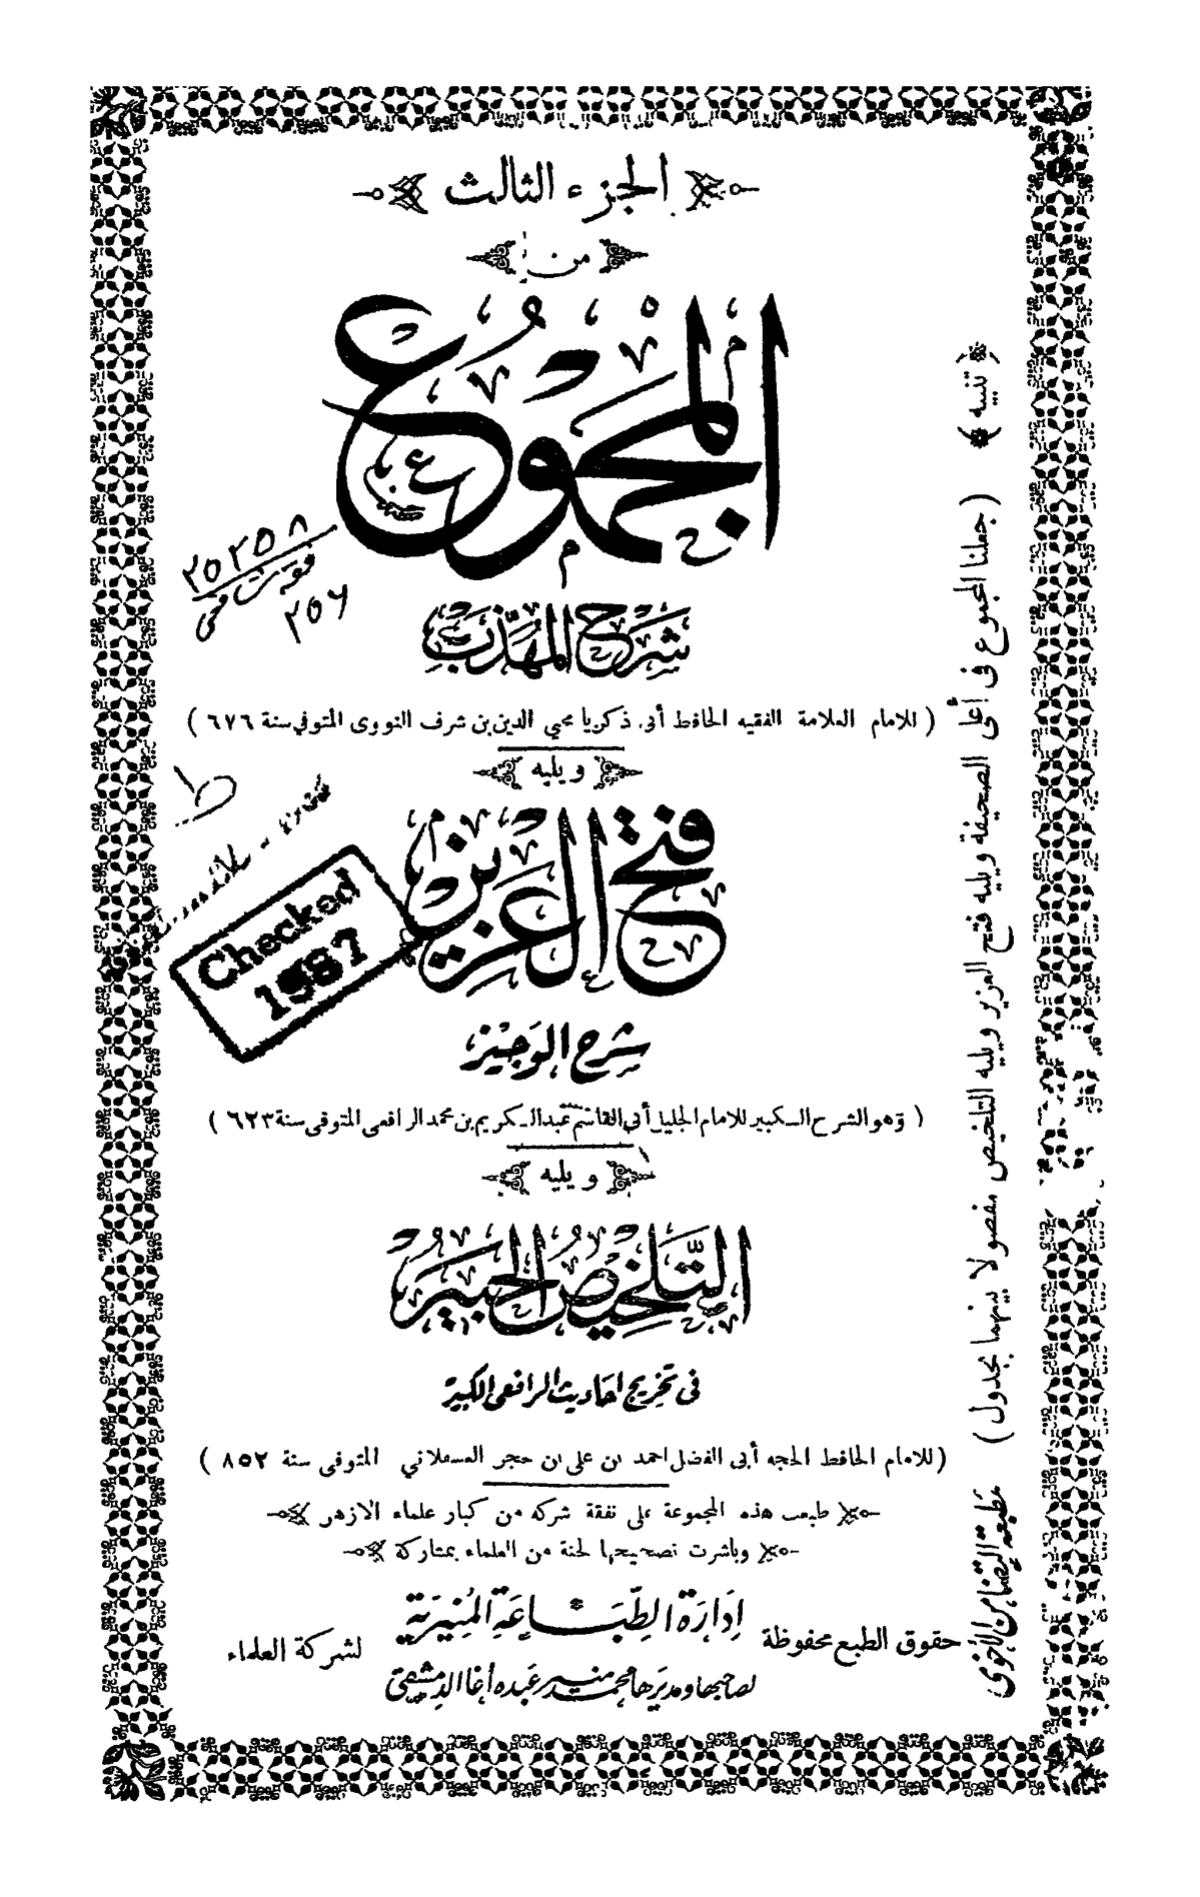 الجزء الثالث
من
المجموع
شرح المهذب
( للامام العلامة الفقيه الحافظ أبى زكريا محيي الدين بن شرف النووى المتوفي سنة ٦٧٦ )
ويليه
فتح العزيز
شرح الوجيز
( وهو الشرح الكبير للامام الجليل أبي القاسم عبد الكريم بن محمد الرافعى المتوفى سنة ٦٢٣ )
ويليه
التلخيص الحبير
فى تخريج احاديث الرافعى الكبير
( للامام الحافظ الحجه أبى الفضل احمد بن على بن حجر العسقلاني المتوفى سنة ٨٥٢ )
طبعت هذه المجموعة على نفقة شركه من كبار علماء الازهر
وباشرت تصحيحها لجنة من العلماء بمشاركة
إدارة الطباعة المنيرية
حقوق الطبع محفوظة
لشركة العلماء
لصاحبها ومديرها محمد منير عبده أغا الدمشقى
( تنبيه )
( جعلنا المجموع فى أعلى الصحيفة ويليه فتح العزيز ويليه التلخيص مفصولا بينهما بجدول )
مطبعة التضامن الأخوى
٢٥٢٥٨
٢٥٦
Checked
1987